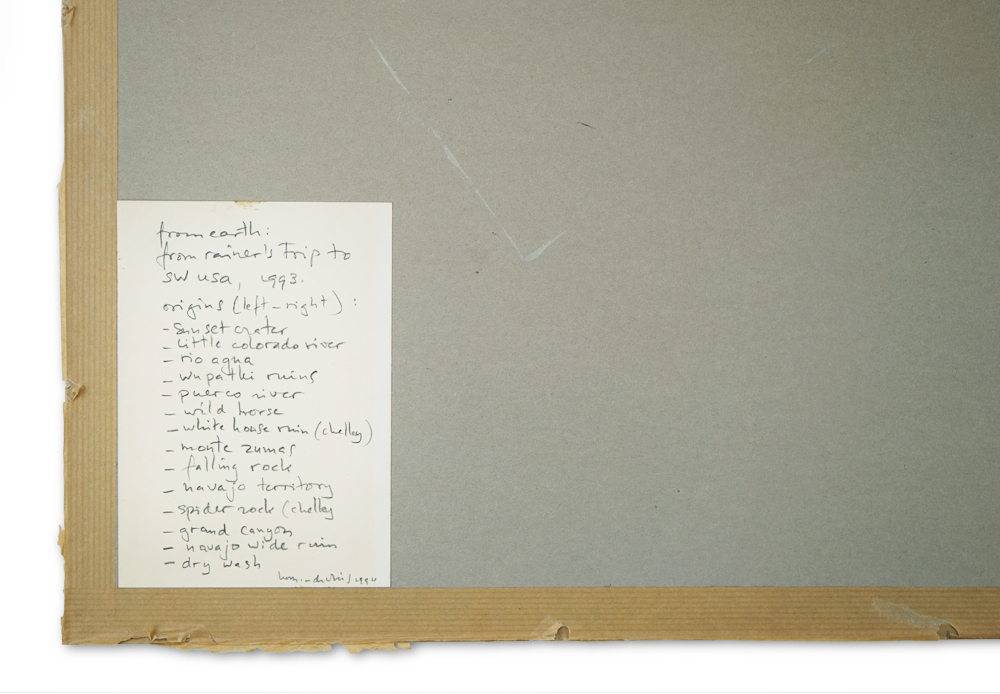 from earth:
from rainer's trip to
sw usa, 1993.
origins (left-right):
- sunset crater
- little colorado river
- rio agua
- wupatki ruins
- puerco river
- wild horse
- white house ruin (chelley)
- monte zumas
- falling rock
- navajo territory
- spider rock (chelley
- grand canyon
- navajo wide ruin
- dry wash
/1994